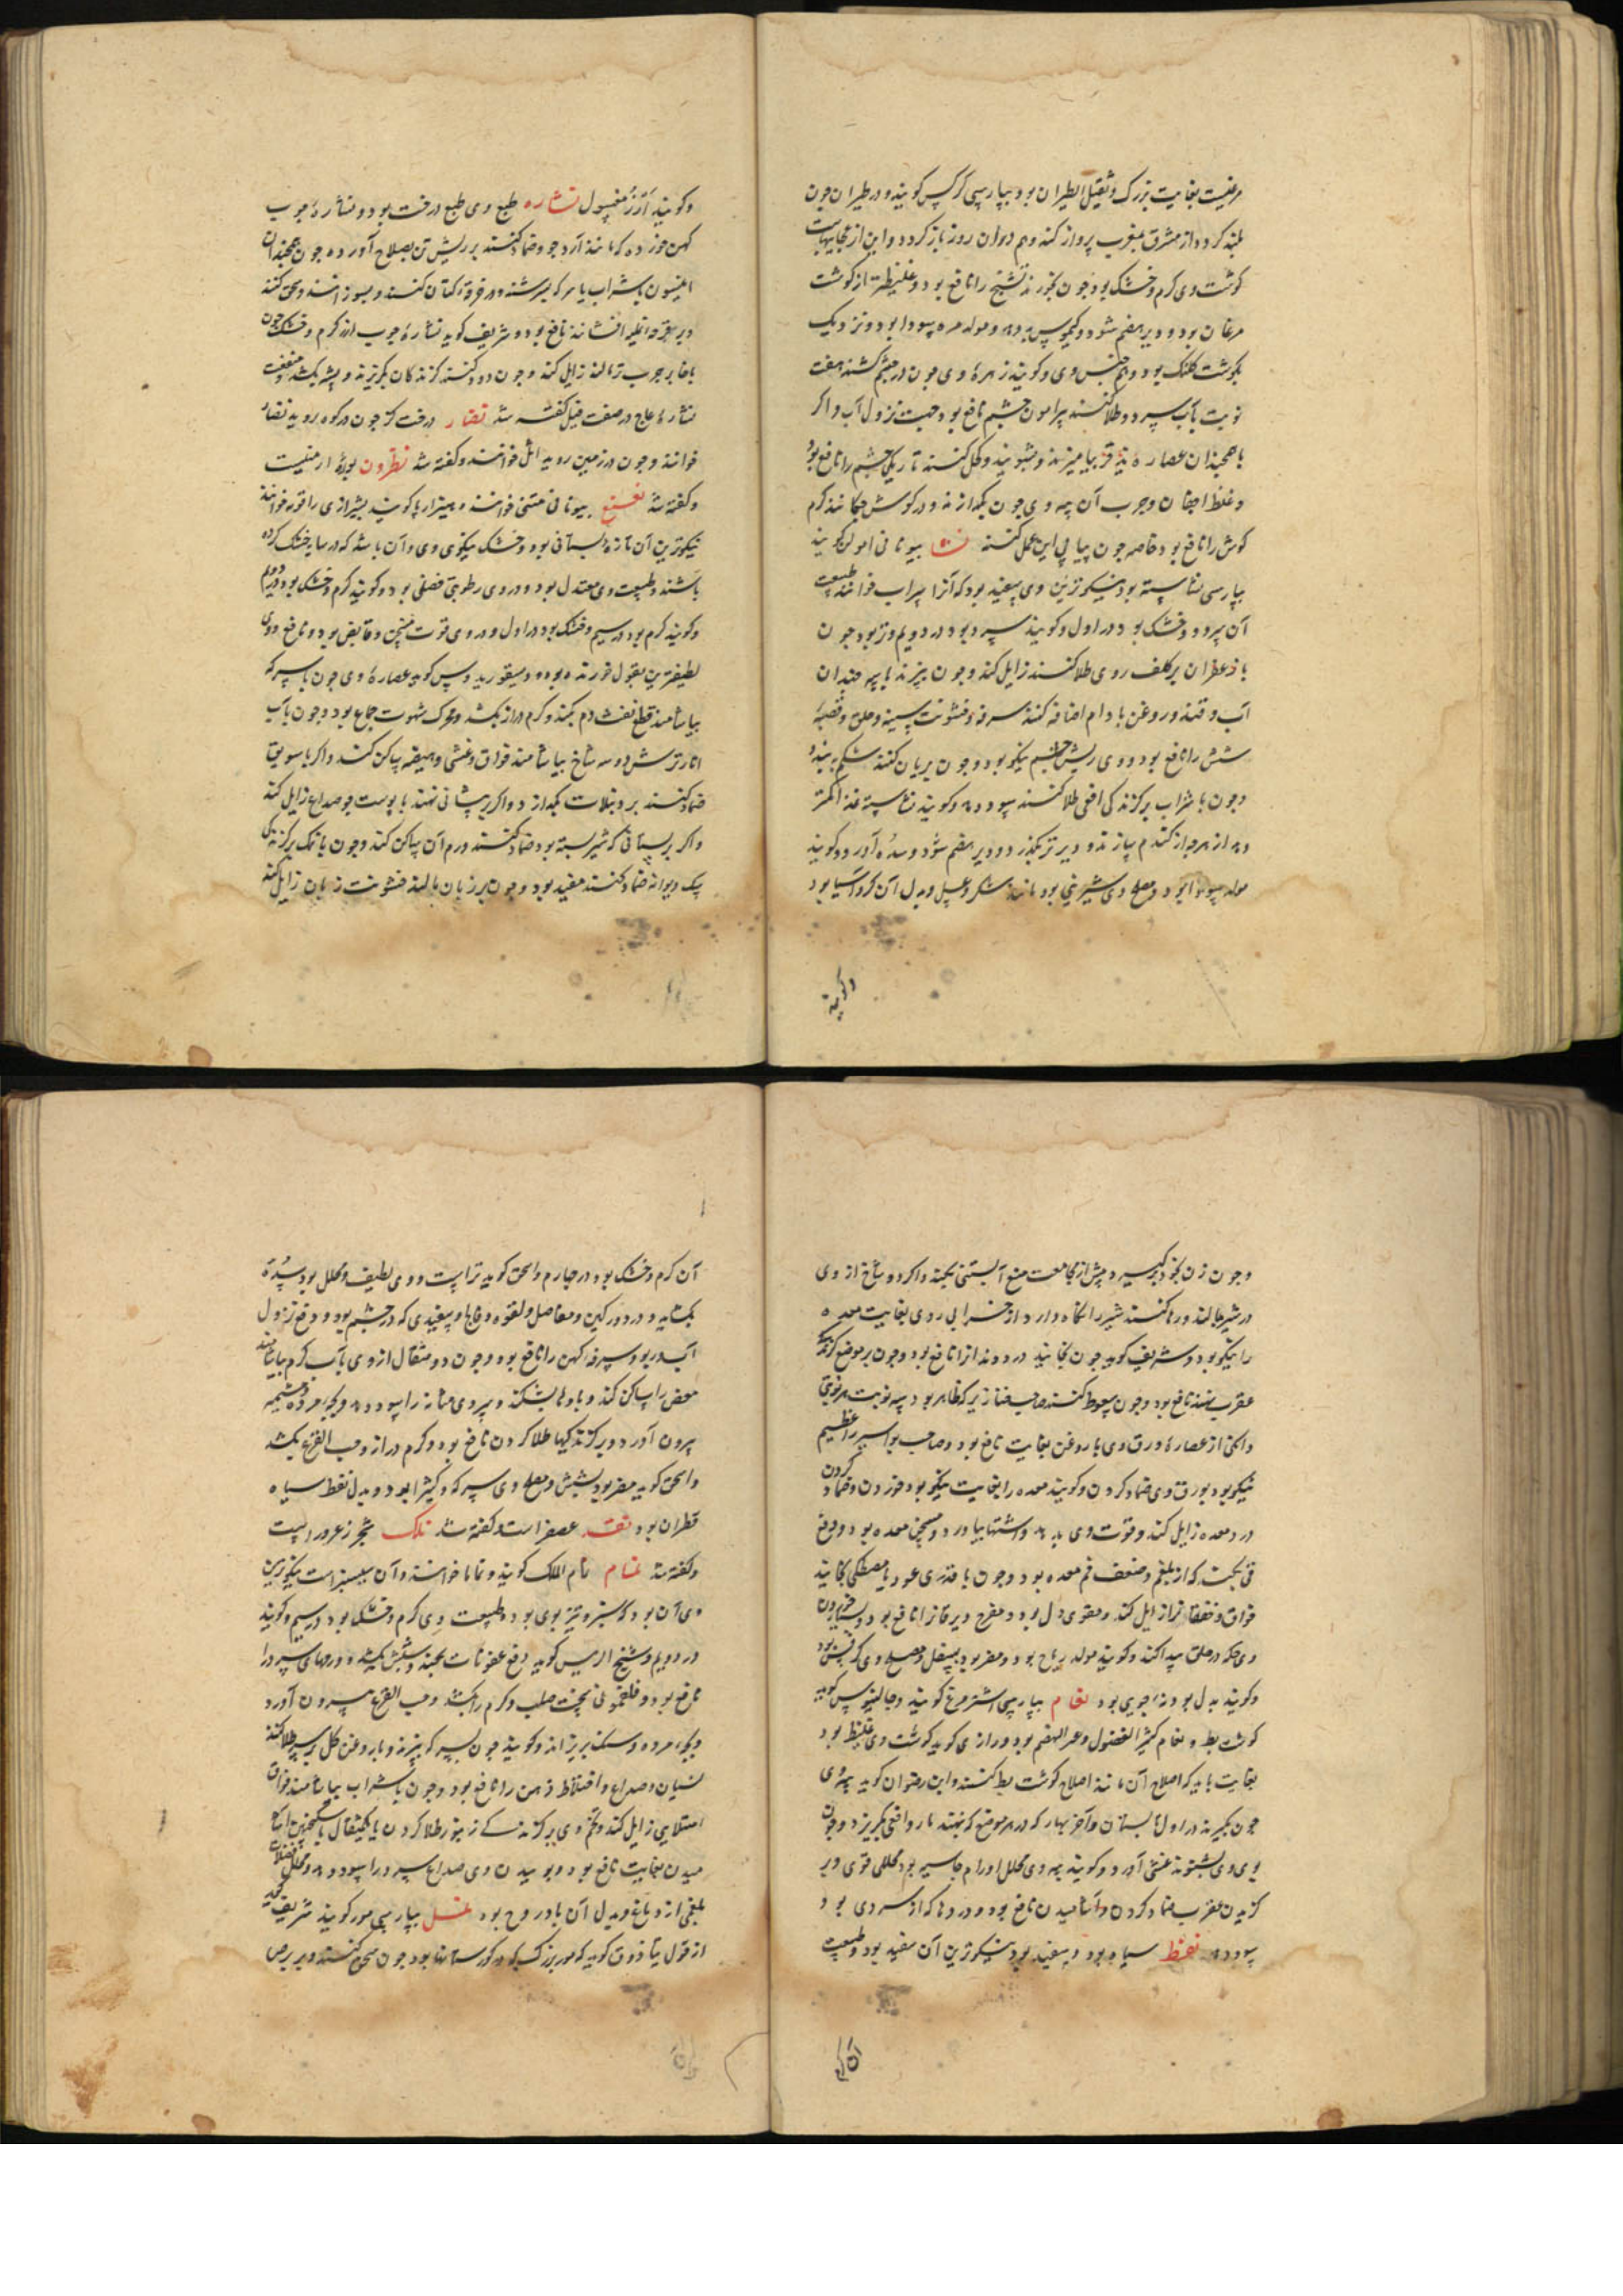 مرغیست بغایت بزرک و ثقیل الطیران بود بپارسی کرکس کویند و در طیران چون
بلند کردد از مشرق بمغرب پرواز کند و هم دران روز باز کردد و این از عجایبهاست
کوشت وی کرم و خشک بود چون بخورند تشنج را نافع بود و غلیظتر از کوشت
مرغان بود و دیر هضم شود و کیموس بد دهد و مولد مره سودا بود و نزدیک
بکوشت کلنک بود و هم جنس وی و کویند زهره وی چون در چشم کشند هفت
نوبت بآب سرد و طلا کنند پیرامون چشم نافع بود جهت نزول آب و اکر
با همچندان عصاره بیامیزند و کحل کنند تاریکی چشم را نافع بود
و غلظ اجفان و جرب آن پیه وی چون بکدازند و در کوش چکانند کرم
کوش را نافع بود خاصه چون پیاپی این عمل کنند نشا بیونانی امولن کویند
بپارسی نشاسته بود نیکوترین وی سپید بود که آنرا سراب خوانند طبیعت
آن سرد و خشک بود در اول و کویند سرد بود در دویم و تر بود چون
با زعفران بر کلف روی طلا کنند زایل کند و چون بپزند با سه چندان
آب و قند و روغن بادام اضافه کنند سرفه و خشونت سینه و حلق و قصبه
شش را نافع بود و وی ریش چشم نیکو بود و چون بریان کنند شکم ببندد
و چون با شراب بر کزندکی افعی طلا کنند سود دهد و کویند نشاسته غذا کمتر
دهد از هرچه از کندم سازند و دیرتر بکذرد و دیر هضم شود و سده آورد و کویند
مولد سودا بود و مصلح وی شیرینی بود مانند شکر و عسل و بدل آن کرد آسیا بود
وکویند
وکویند ارز مغسول نشاره طبع وی طبع درخت بود و نشاره چوب
کهن خورده که مانند آرد جو ضماد کنند بر ریش تن بصلاح آورد و چون همچندان
انیسون با شراب یا سرکه بسرشند و در خرقه کتان کنند و بسوزانند و سحق کنند
و بر قرحه نمله افشانند نافع بود و شریف کوید نشاره چوب ارز کرم و خشک چون
با حنا بر جرب تر مالند زایل کند و چون دود کنند کزندکان بکریزند و پشه بکشد منفعت
نشاره عاج در صفت فیل کفته شد نضار درخت کز چون در کوه روید نضار
خوانند و چون در زمین روید اثل خوانند و کفته شد نطرون بوره ارمنیست
و کفته شد نعنع بیونانی منتنی خوانند و هیثرا رپا کویند بشیرازی راقونه خوانند
نیکوترین آن تازه بستانی بود و خشک نیکوی وی آن باشد که در سایه خشک کرده
باشند و طبیعت وی معتدل بود و در وی رطوبتی فضلی بود و کویند کرم و خشک بود در دویم
و کویند کرم بود در سیم و خشک بود در اول و در وی قوت مسخن و قابض بود و مانع و وی
لطیفترین بقول خورنده بود و دیسقوریدوس کوید عصاره وی چون با سرکه
بیاشامند قطع نفث دم بکند و کرم دراز بکشد و محرک شهوت جماع بود و چون با آب
انار ترش دو سه شاخ بیاشامند فواق و غشی و هیضه ساکن کند و اکر با سویق
ضماد کنند بر دبیلات بکدازد و اکر بر پیشانی نهند با پوست جو صداع زایل کند
و اکر بر پستانی که شیر بسته بود ضماد کنند ورم آن ساکن کند و چون با نمک بر کزندکی
سک دیوانه ضماد کنند مفید بود و چون بر زبان مالند خشونت زبان زایل کند
و چون زن بخود برکیرد پیش از مجامعت منع آبستنی بکند و اکر دو شاخ از وی
در شیر مالند و رها کنند شیر را نکاه دارد از خرابی وی بغایت معده
را نیکو بود و شریف کوید چون بخایند درد دندانرا نافع بود و چون بر موضع کزندکی
عقرب نهند نافع بود و چون سعوط کنند صاحب خنازیر که ظاهر بود سه نوبت هر نوبتی
دانکی از عصاره ورق وی با روغن بغایت نافع بود و صاحب بواسیر را عظیم
نیکو بود بورق وی ضماد کردن و کویند معده را بغایت نیکو بود خوردن و ضماد کردن
درد معده زایل کند و قوت وی بدهد و اشتها بیاورد و مسخن معده بود و دفع
قی بکند که از بلغم و ضعف فم معده بود و چون با قدری عود یا مصطکی بخایند
فواق و خفقان زایل کند و مقوی دل بود و مفرح و یرقانرا نافع بود و بسیار خوردن
وی حکه در حلق پیدا کند و کویند مولد ریاح بود و مضر بود بسفل و مصلح وی کرفس بود
و کویند بدل بود نه جوی بود نعام بپارسی اشترمرغ کویند و جالینوس کوید
کوشت بط و نعام کثیر الفضول و عسر الهضم بود و رازی کوید کوشت وی غلیظ بود
بغایت باید که اصلاح آن مانند اصلاح کوشت بط کنند و ابن رضوان کوید پیه وی
چون بکیرند در اول تابستان و آخر بهار که در هر موضع که بنهند مار و افعی بکریزد و چون
بوی وی بشنوند غشی آورد و کویند پیه وی محلل اورام جاسیه بود محللی قوی و بر
کزیدن عقرب ضماد کردن و آشامیدن نافع بود و دردها که از سردی بود
سود دهد نفط سیاه بود و سفید بود نیکوترین آن سفید بود و طبیعت
آن کرم
آن کرم و خشک بود در چهارم و اسحق کوید تر است و وی لطیف و محلل بود سده
بکشاید و درد ورکین و مفاصل و لقوه و فالج و سپیدی که در چشم بود و دفع نزول
آب و ربو و سرفه کهن را نافع بود و چون دو مثقال از وی با آب کرم بیاشامند
مغص را ساکن کند و بادها بشکند و سردی مثانه را سود دهد و بچه مرده و مشیمه
بیرون آورد و بر کزندکیها طلا کردن نافع بود و کرم دراز و حب القرع بکشد
و اسحق کوید مضر بود بشش و مصلح وی سرکه و کثیرا بود و بدل نفط سیاه
قطران بود نقد عصفر است و کفته شد نلک شجر زعرور است
و کفته شد نمام نمام الملک کویند و نماما خوانند و آن سیسنبر است نیکوترین
وی آن بود که سبز و تیز بوی بود و طبیعت وی کرم و خشک بود در سیم و کویند
در دویم و شیخ الرییس کوید دفع عفونات بکند و شپش بکشد و ورمهای سرد را
نافع بود و فلغمونی سخت صلب و کرم را بکشد و حب القرع بیرون آورد
و بچه مرده و سنک بریزاند و کویند چون بسرکه بپزند و با روغن کل بر سر طلا کنند
نسیان و صداع و اختلاط ذهن را نافع بود و چون با شراب بیاشامند فواق
امتلایی زایل کند و تخم وی بر کزندکی زنبور طلا کردن یا یکمثقال با سکنجبین آشا
میدن بغایت نافع بود و بوییدن وی صداع سرد را سود دهد و محلل فضلات
بلغمی از دماغ و بدل آن بادروج بود نمل بپارسی مور کویند شریف کوید
از قول بیاذوق کوید که مور بزرک که در کورستانها بود چون سحق کنند و بر برص